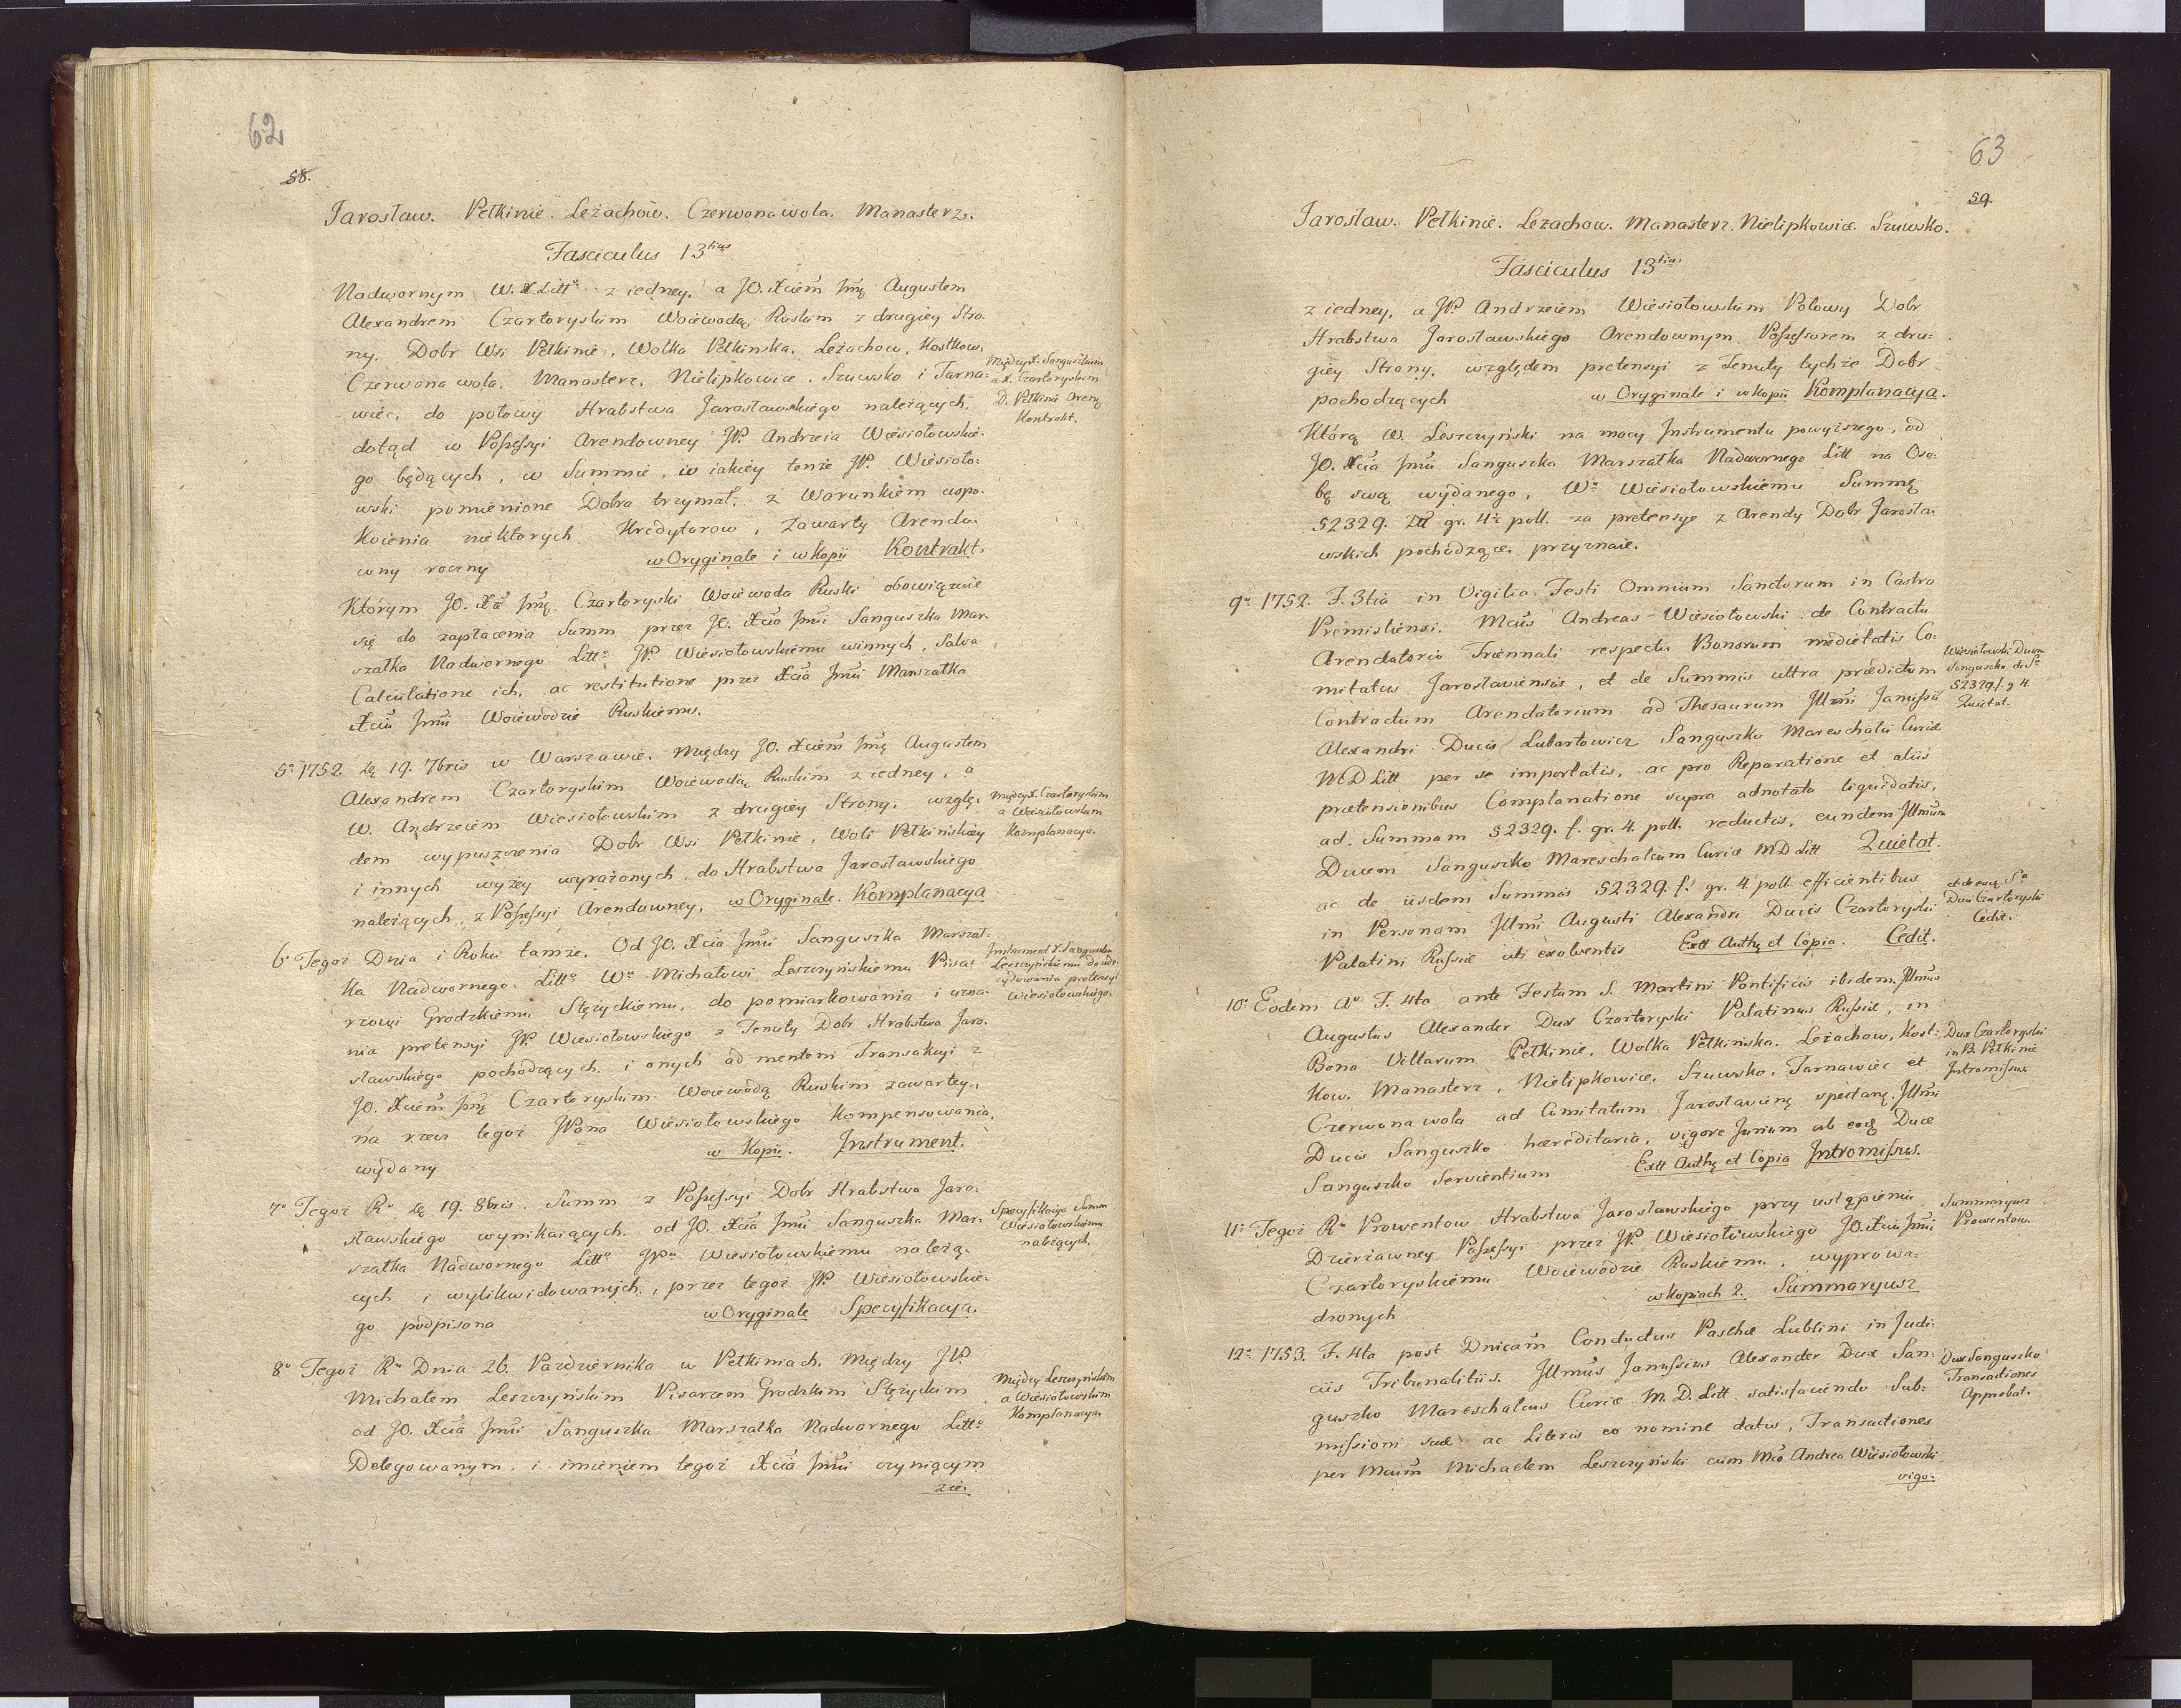 62
58.
Jarosław. Pełkinie. Leżachów. Czerwona wola. Manasterz.
Fasciculus 13tius
Nadwornym W. X. Litto z iedney, a JO. Xciem Jmę Augustem
Alexandrem Czartoryskim Woiewodą Ruskim z drugiey Stro-
ny. Dobr Wsi Pełkinie, Wolka Pełkinska, Leżachow, Kostkow,
Czerwona wola, Manasterz, Nielipkowice, Szuwsko i Tarna-
wiec, do połowy Hrabstwa Jarosławskiego należących,
dotąd w Possessyi Arendowney JP. Andrzeia Wiesiołowskie-
go będących, w Summie, w iakiey tenże JP. Wiesioło-
wski pomienione Dobra trzymał, z Warunkiem uspo-
koienia niektorych Kredytorow, zawarty Arendo-
wny roczny w Oryginale i w kopii Kontrakt.
Między X. Sanguszkiem
a X. Czartoryskim
D. Pełkinie Areną
Kontrakt.
Którym JO. Xże Jmę Czartoryski Woiewoda Ruski obowiązuie
się do zapłacenia Summ przez JO. Xcia Jmci Sanguszka Mar-
szałka Nadwornego Litto JP. Wiesiołowskiemu winnych, Salva
Calculatione ich, ac restitutione przez Xcia Jmci Marszałka
Xciu Jmci Woiewodzie Ruskiemu.
5o 1752. Dę 19. 7bris w Warszawie. Między JO. Xciem Jmę Augustem
Alexandrem Czartoryskim Woiewodą Ruskim z iedney, a
W. Andrzeiem Wiesiołowskim z drugiey Strony, wzglę-
dem wypuszczenia Dobr Wsi Pełkinie, Woli Pełkińskiey
i innych wyżey wyrażonych, do Hrabstwa Jarosławskiego
należących, z Possessyi Arendowney, w Oryginale. Komplanacya
Między X. Czartoryskim
a Wiesiołowskim
Komplanacya.
6o Tegoż Dnia i Roku tamże. Od JO. Xcia Jmci Sanguszka Marszał-
ka Nadwornego Litto Wo Michałowi Leszczyńskiemu Pisa-
rzowi Grodzkiemu Stężyckiemu, do pomiarkowania i uzna-
nia pretensyi JP. Wiesiołowskiego z Tenuty Dobr Hrabstwa Jaro-
sławskiego pochodzących, i onych ad mentem Transakcyi z
JO. Xciem Jmę Czartoryskim Woiewodą Ruskim zawartey,
na rzecz tegoż JPana Wiesiołowskiego kompensowania,
wydany w Kopii. Instrument.
Instrument X. Sanguszka
Leszczyńskiemu do
pretensyi
Wiesiołowskiego.
7o Tegoż Ru Dę 19. 8bris. Summ z Possessyi Dobr Hrabstwa Jaro-
sławskiego wynikaiących, od JO. Xcia Jmci Sanguszka Mar-
szałka Nadwornego Litto JPu Wiesiołowskiemu należą-
cych i wylikwidowanych, przez tegoż JP. Wiesiołowskie-
go podpisana w Oryginale Specyfikacya.
Specyfikacya Summ
Wiesiołowskiemu
należących.
8o Tegoż Ru Dnia 26. Pazdziernika w Pełkiniach. Między JP.
Michałem Leszczyńskim Pisarzem Grodzkim Stężyckim
od JO. Xcia Jmci Sanguszka Marszałka Nadwornego Litto
Delegowanym, i imieniem tegoż Xcia Jmci czyniącym
zie-
Między Leszczyńskim
a Wiesiołowskim
Komplanacya.
63
59.
Jarosław. Pełkinie. Leżachow. Manasterz. Nielipkowice. Szuwsko.
Fasciculus 13tius
z iedney, a JP. Andrzeiem Wiesiołowskim Połowy Dobr
Hrabstwa Jarosławskiego Arendownym Possessorem z dru-
giey Strony, względem pretensyi z Tenuty tychże Dobr
pochodzących w Oryginale i w kopii Komplanacya.
Którą W. Leszczyński na mocy Instrumentu powyższego, od
JO. Xcia Jmci Sanguszka Marszałka Nadwornego Litt na Oso-
bę swą wydanego, Wu Wiesiołowskiemu Summę
52329. Zł gr. 4½ poll. za pretensye z Arendy Dobr Jarosła-
wskich pochodzące przyznaie.
9o 1752. F. 3tia in Vigilia Festi Omnium Sanctorum in Castro
Premisliensi. Mcus Andreas Wiesiołowski de Contractu
Arendatorio Triennali respectu Bonorum medietatis Co-
mitatus Jaroslaviensis, et de Summis ultra praedictum
Contractum Arendatorium ad Thesaurum Illmi Janussii
Alexandri Ducis Lubartowicz Sanguszko Mareschalci Curiae
M D Litt per se importatis, ac pro Reparatione et aliis
praetensionibus Complanatione supra adnotata liquidatis,
ad Summam 52329. f. gr. 4. poll. reductis, eundem Illmum
Ducem Sanguszko Mareschalcum Curiae M D Litt Quietat.
ac de iisdem Summis 52329. f. gr. 4 poll. efficientibus
in Personam Illmi Augusti Alexandri Ducis Czartoryski
Palatini Russiae uti exolventis Extt Authę et Copia. Cedit.
Wiesiołowski Ducem
Sanguszko de Sa
52329 f. g 4.
Quietat.
et de eadę Sa
Duci Czartoryski
Cedit.
10o Eodem Ao F. 4ta ante Festum S. Martini Pontificis ibidem. Illmus
Augustus Alexander Dux Czartoryski Palatinus Russiae, in
Bona Villarum Pełkinie, Wolka Pełkińska, Leżachow, Kost-
kow, Manasterz, Nielipkowice, Szuwsko, Tarnawiec et
Czerwona wola ad Comitatum Jaroslavienę spectanę, Illmi
Ducis Sanguszko haereditaria, vigore Jurium ab eodę Duce
Sanguszko Servientium Extt Authę et Copia Intromissus.
Dux Czartoryski
in B. Pełkinie
Intromissus
11o Tegoż Ru Prowentow Hrabstwa Jarosławskiego przy ustąpieniu
Dzierżawney Possessyi przez JP. Wiesiołowskiego JO. Xciu Jmci
Czartoryskiemu Woiewodzie Ruskiemu, wyprowa-
dzonych w kopiach 2. Summaryusz
Summaryusz
Prowentow.
12o 1753. F. 4ta post Dnicam Conductus Paschae Lublini in Judi-
ciis Tribunalitiis. Illmus Janussius Alexander Dux San-
guszko Mareschalcus Curiae M. D. Litt. satisfaciendo Sub-
missioni suae ac Literis eo nomine datis, Transactiones
per Mcum Michaelem Leszczyński cum Mco Andrea Wiesiołowski
vigo-
Dux Sanguszko
Transactiones
Approbat.